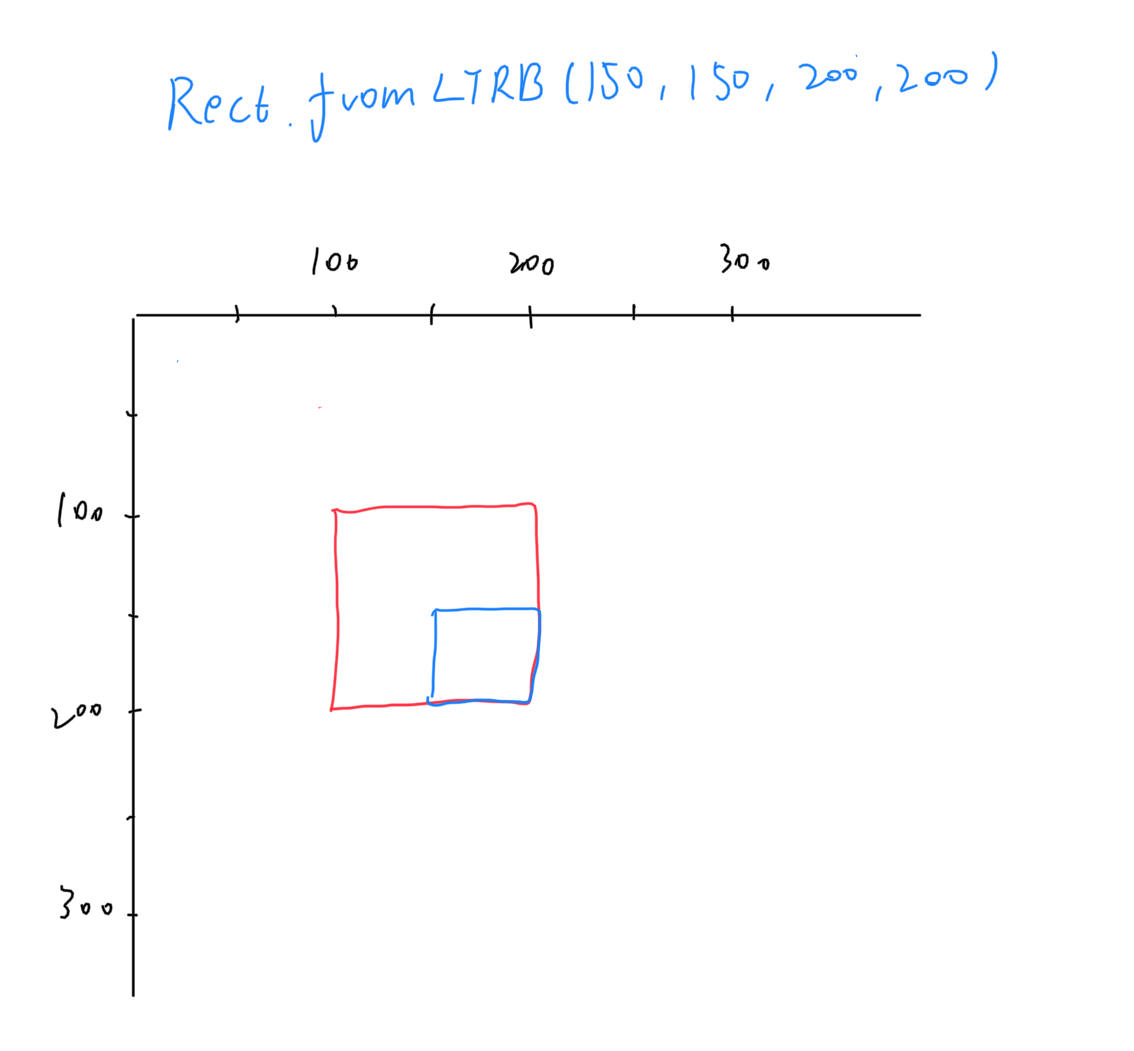 Rect.fromLTRB(150, 150, 200, 200)
100 200 300
100
200
300